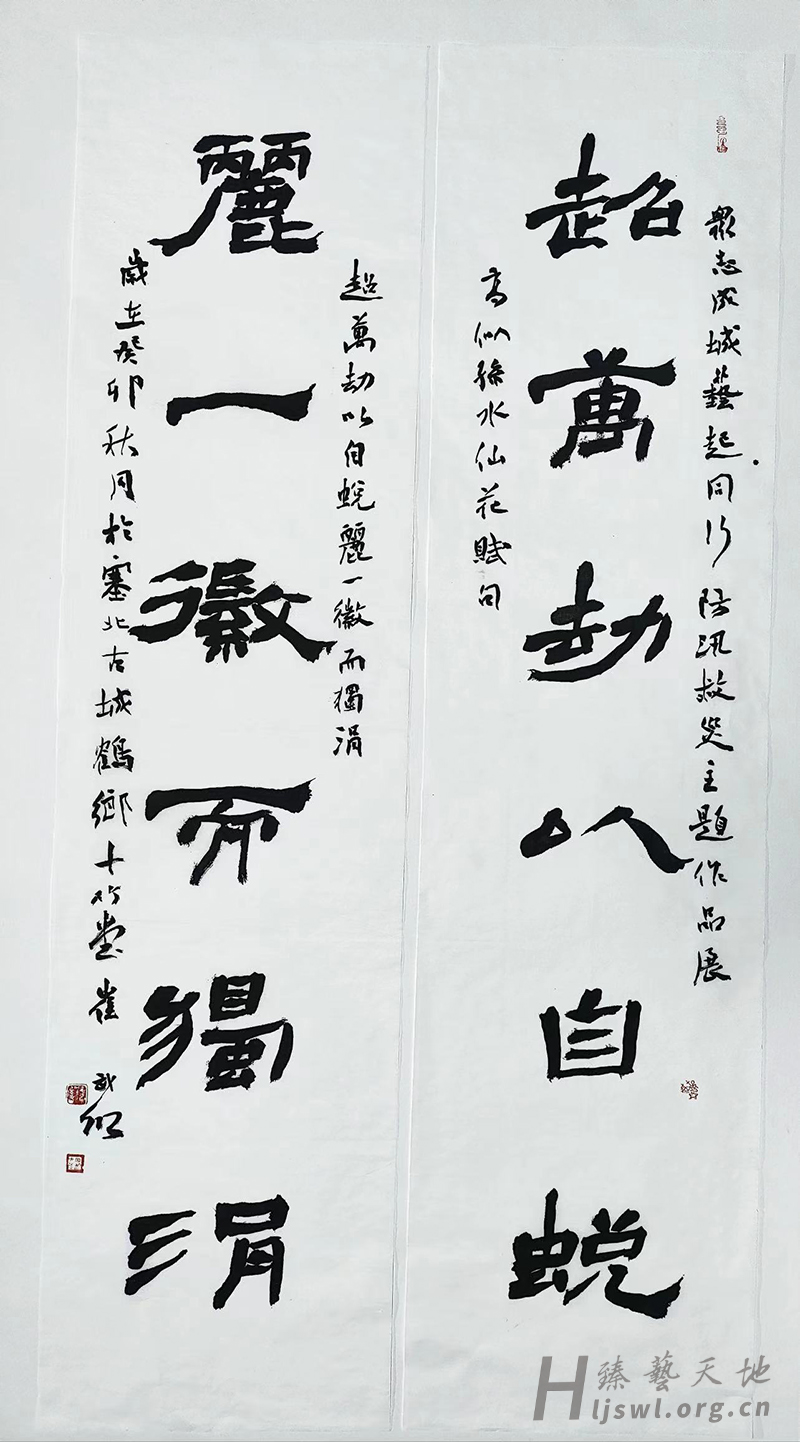 眾志成城藝起同行防汛救災主題作品展
超萬劫以自蛻
高似孫水仙花賦句
超萬劫以自蛻麗一徽而獨涓
麗一徽而獨涓
歲在癸卯秋月於塞北古城鶴鄉十竹堂崔
臻藝天地
Hljswl.org.cn